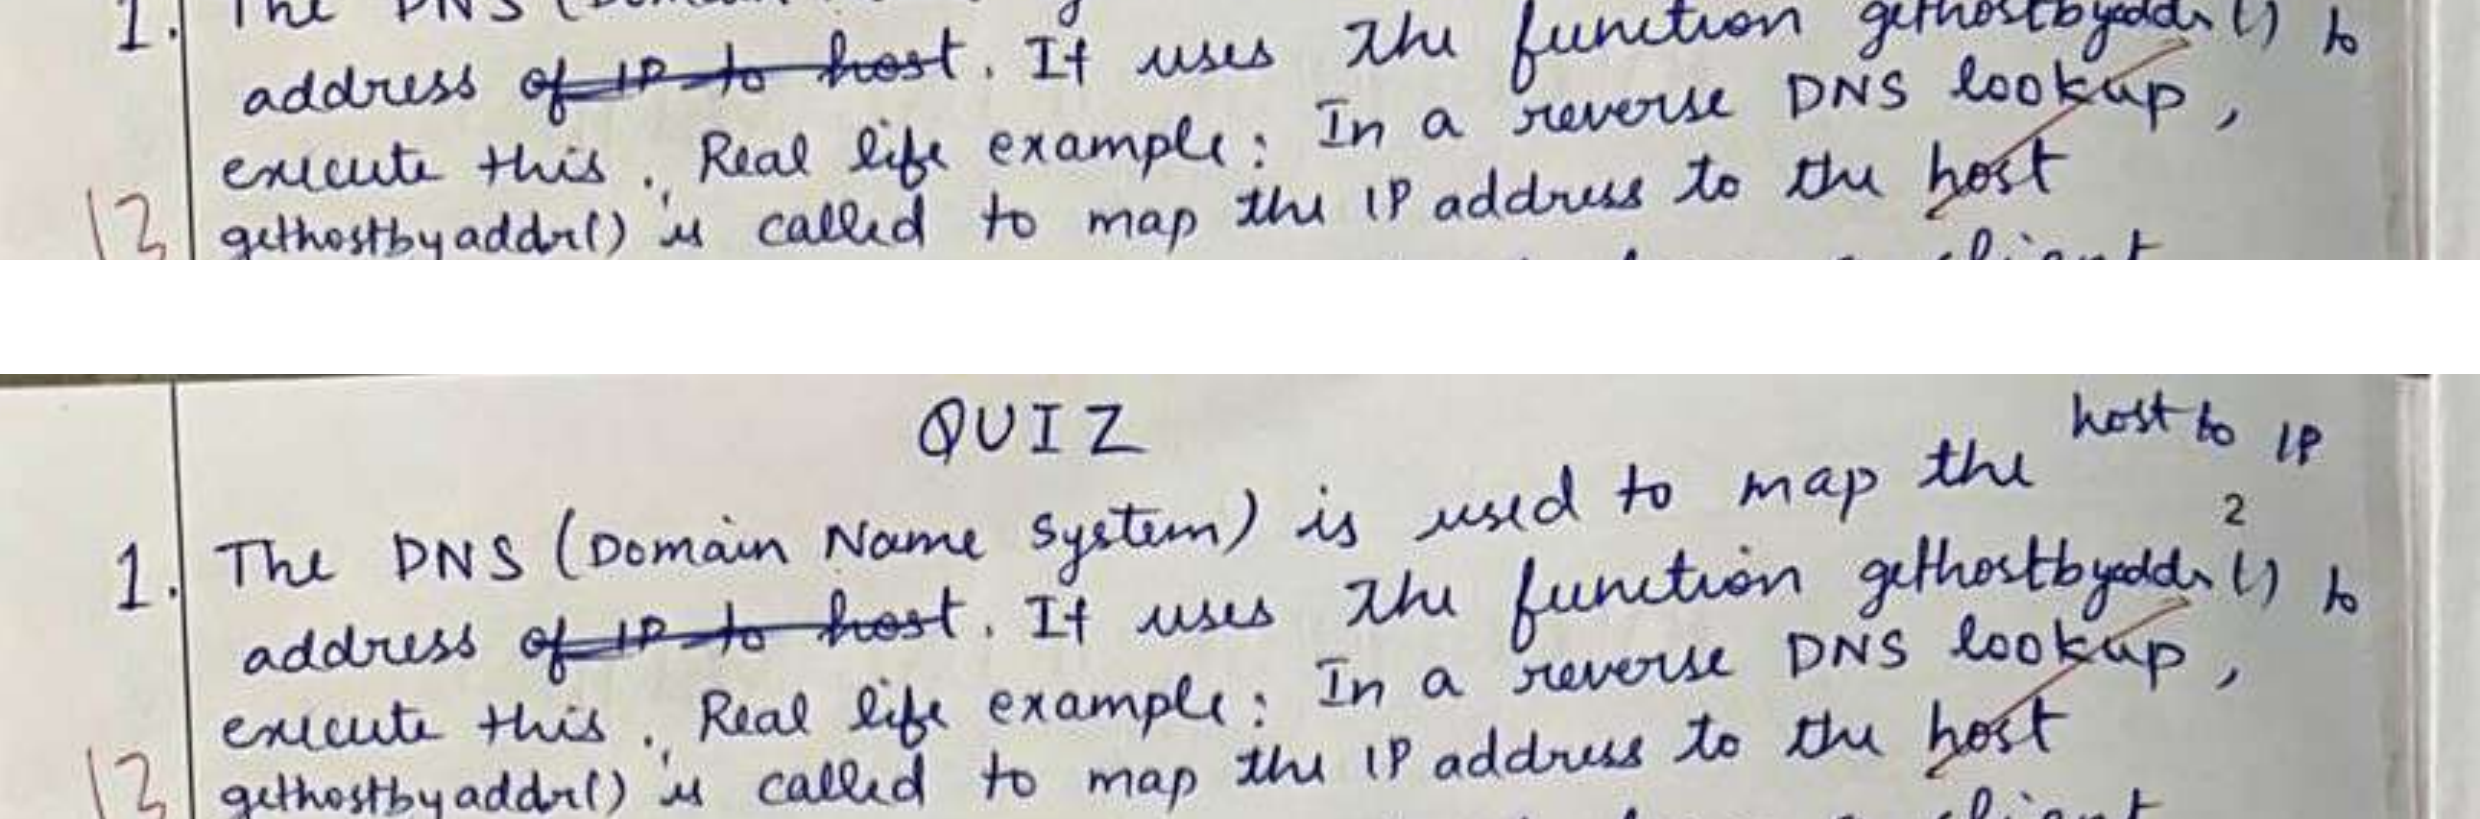 1. The DNS (Domain
address of IP to host. It uses the function gethostbyaddr() to
execute this. Real life example: In a reverse DNS lookup,
gethostbyaddr() is called to map the IP address to the host
13
client
QUIZ
host to IP
1. The DNS (Domain Name System) is used to map the
2
address of IP to host. It uses the function gethostbyaddr() to
execute this. Real life example: In a reverse DNS lookup,
gethostbyaddr() is called to map the IP address to the host
13
client